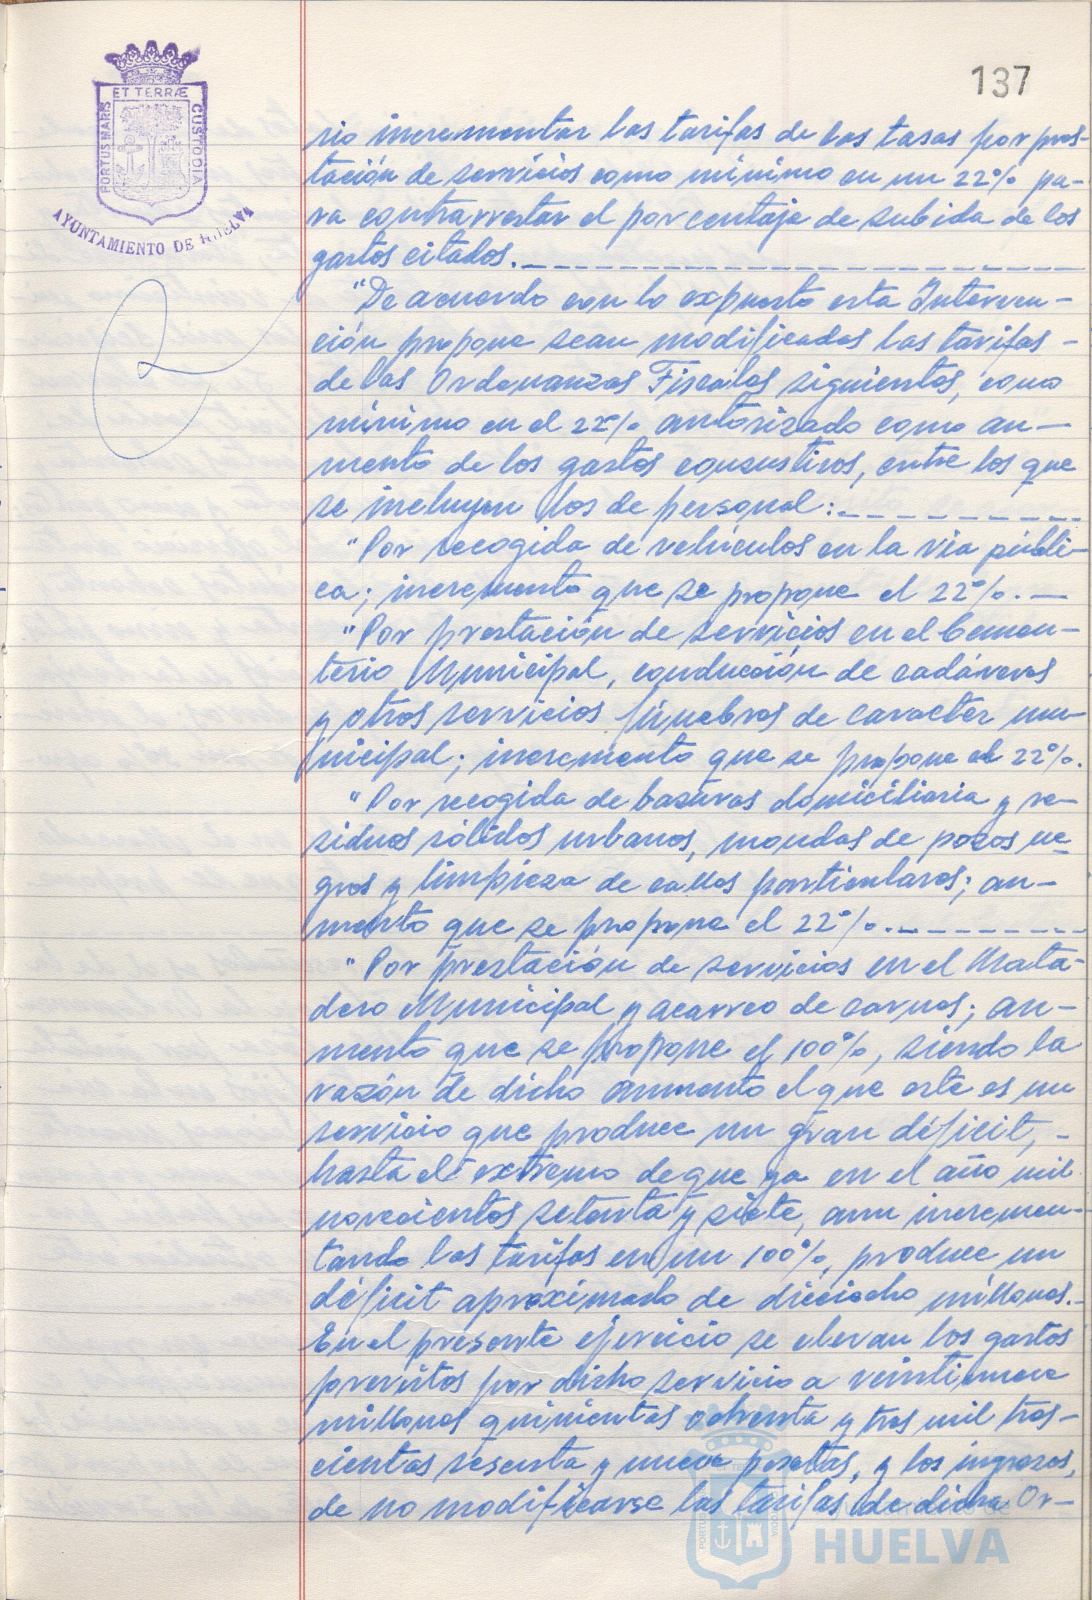 ET TERRÆ
PORTUS MARIS
CUSTODIA
AYUNTAMIENTO DE HUELVA
137
rio incrementar las tarifas de las tasas por pres-
tación de servicios como mínimo en un 22% pa-
ra contrarrestar el porcentaje de subida de los
gastos citados.
"De acuerdo con lo expuesto esta Interven-
ción propone sean modificadas las tarifas -
de las Ordenanzas Fiscales siguientes, como
mínimo en el 22% autorizado como au-
mento de los gastos consustivos, entre los que
se incluyen los de personal:
"Por recogida de vehículos en la vía públi-
ca; incremento que se propone el 22%. —
"Por prestación de servicios en el Cemen-
terio Municipal, conducción de cadáveres
y otros servicios fúnebres de caracter mu-
nicipal; incremento que se propone el 22%.
"Por recogida de basuras domiciliaria y re-
siduos sólidos urbanos, mondas de pozos ne-
gros y limpieza de calles particulares; au-
mento que se propone el 22%.
"Por prestación de servicios en el Mata-
dero Municipal y acarreo de carnes; au-
mento que se propone el 100%, siendo la
razón de dicho aumento el que este es un
servicio que produce un gran déficit, -
hasta el extremo de que ya en el año mil
novecientos setenta y siete, aun incremen-
tando las tarifas en un 100%, produce un
déficit aproximado de dieciocho millones.-
En el presente ejercicio se elevan los gastos
previstos por dicho servicio a veintinueve
millones quinientas ochenta y tres mil tres-
cientas sesenta y nueve pesetas, y los ingresos,
de no modificarse las tarifas de dicha Or-
HUELVA